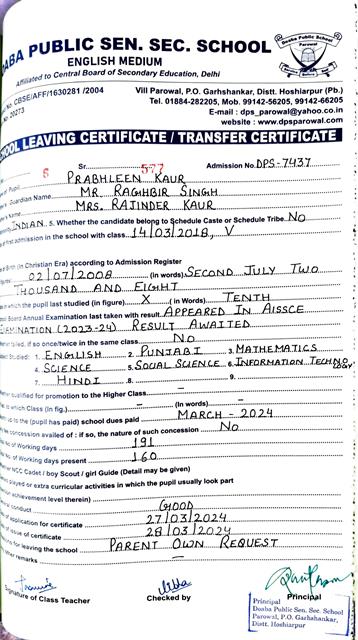 DOABA PUBLIC SEN. SEC. SCHOOL
ENGLISH MEDIUM
Affiliated to Central Board of Secondary Education, Delhi
No. CBSE/AFF/1630281 /2004
20273
Vill Parowal, P.O. Garhshankar, Distt. Hoshiarpur (Pb.)
Tel. 01884-282205, Mob. 99142-56205, 99142-66205
E-mail : dps_parowal@yahoo.co.in
website : www.dpsparowal.com
OOL LEAVING CERTIFICATE / TRANSFER CERTIFICATE
S Sr. 577 Admission No. DPS-7437
of Pupil PRABHLEEN KAUR
Guardian Name MR. RAGHBIR SINGH
Name MRS. RAJINDER KAUR
INDIAN 5. Whether the candidate belong to Schedule Caste or Schedule Tribe NO
of first admission in the school with class 14/03/2018, V
Birth (In Christian Era) according to Admission Register
02/07/2008 (in words) SECOND JULY TWO
THOUSAND AND EIGHT
in which the pupil last studied (in figure) X (in Words) TENTH
Board Annual Examination last taken with result APPEARED IN AISSCE
EXAMINATION (2023-24) RESULT AWAITED
failed, if so once/twice in the same class NO
Studied : 1. ENGLISH 2. PUNJABI 3. MATHEMATICS
4. SCIENCE 5. SOCIAL SCIENCE 6. INFORMATION TECHNOLOGY
7. HINDI 8. 9.
qualified for promotion to the Higher Class –
to which Class (In fig.) – (In words) –
up to (the pupil has paid) school dues paid MARCH - 2024
concession availed of : if so, the nature of such concession NO
No. of Working days 191
No. of Working days present 160
NCC Cadet / boy Scout / girl Guide (Detail may be given)
played or extra curricular activities in which the pupil usually look part
achievement level therein)
conduct GOOD
of application for certificate 27/03/2024
of issue of certificate 28/03/2024
for leaving the school PARENT OWN REQUEST
remarks –
Signature of Class Teacher
Checked by
Principal
Principal
Doaba Public Sen. Sec. School
P.O. Garhshankar,
Distt. Hoshiarpur